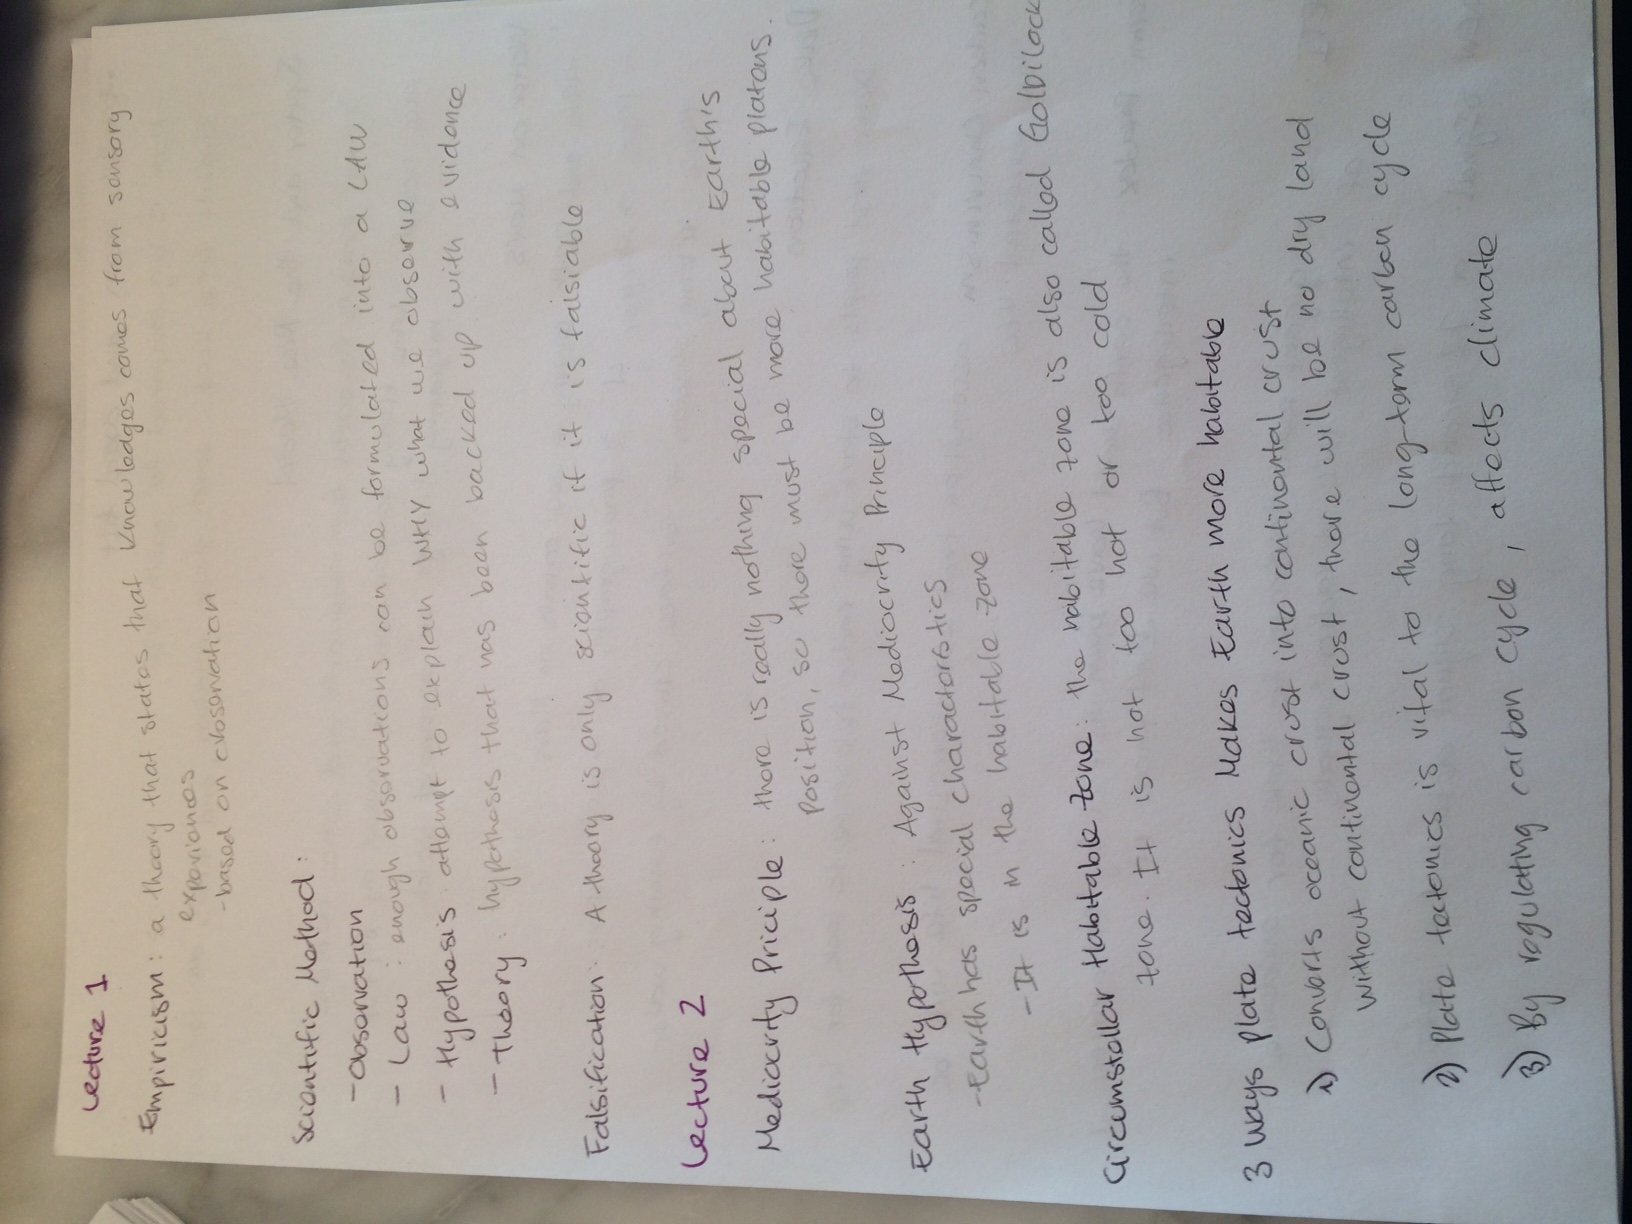 Lecture 1
Empiricism: a theory that states that knowledges comes from sensory
experiences
-based on observation
Scientific Method:
-Observation
- Law: enough observations can be formulated into a LAW
- Hypothesis: attempt to explain WHY what we observe
- Theory: hypothesis that has been backed up with evidence
Falsification: A theory is only scientific if it is falsiable
Lecture 2
Mediocrity Priciple: there is really nothing special about Earth's
position, so there must be more habitable platens.
Earth Hypothesis: Against Mediocrity Principle
-Earth has special characterstics
-It is in the habitable zone
Circumstellar Habitable zone: the habitable zone is also called Golbilock
zone. It is not too hot or too cold
3 Ways plate tectonics Makes Earth more habitable
1) Converts oceanic crust into continental crust
without continental crust, there will be no dry land
2) Plate tectonics is vital to the long-term carbon cycle
3) By regulating carbon cycle, affects climate